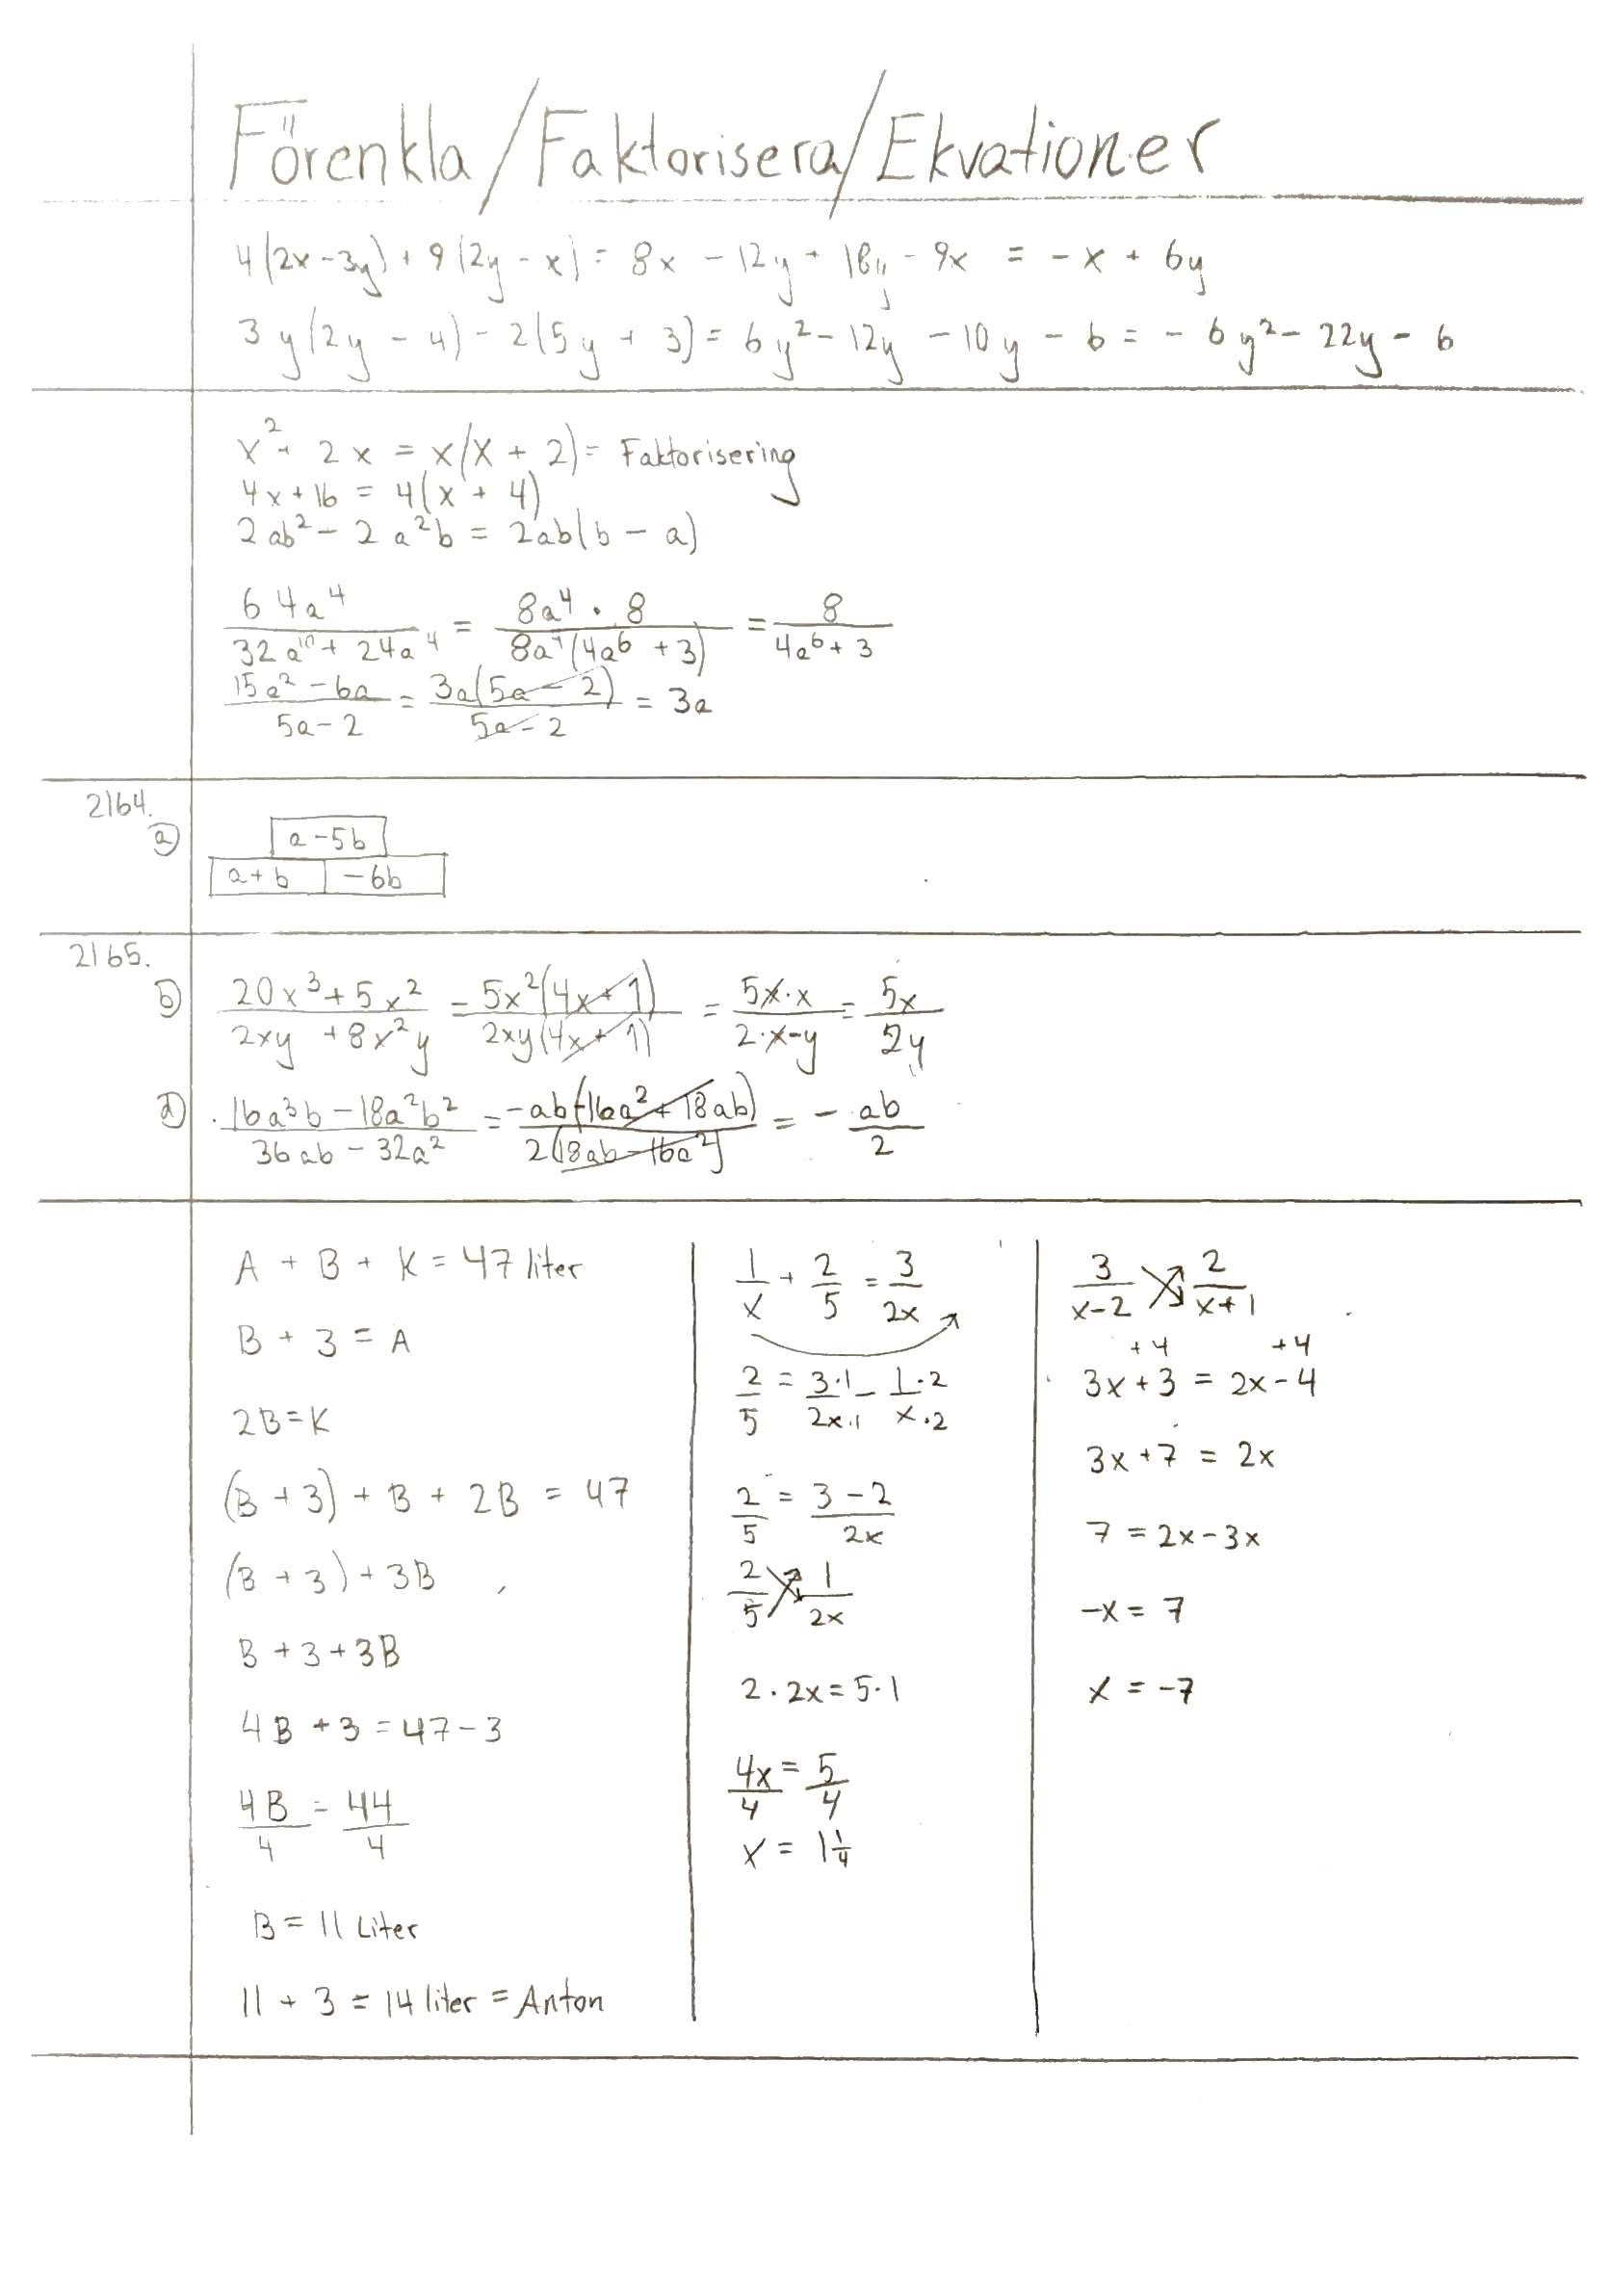 Förenkla/Faktorisera/Ekvationer
4(2x-3y) + 9(2y-x) = 8x - 12y + 18y - 9x = -x + 6y
3y(2y - 4) - 2(5y + 3) = 6y² - 12y - 10y - 6 = - 6y² - 22y - 6
x² + 2x = x(x + 2) = Faktorisering
4x+16 = 4(x + 4)
2ab² - 2a²b = 2ab(b - a)
64a⁴/(32a¹⁰ + 24a⁴) = 8a⁴ · 8/(8a⁴(4a⁶ + 3)) = 8/(4a⁶ + 3)
(15a² - 6a)/(5a - 2) = 3a(5a - 2)/(5a - 2) = 3a
2164.
a) a - 5b
a + b | -6b
2165.
b) (20x³ + 5x²)/(2xy + 8x²y) = 5x²(4x + 1)/(2xy(4x + 1)) = 5x·x/(2·x-y) = 5x/2y
d) (16a³b - 18a²b²)/(36ab - 32a²) = -ab(-16a² + 18ab)/(2(18ab - 16a²)) = - ab/2
A + B + K = 47 liter
B + 3 = A
2B = K
(B + 3) + B + 2B = 47
(B + 3) + 3B
B + 3 + 3B
4B + 3 = 47 - 3
4B/4 = 44/4
B = 11 Liter
11 + 3 = 14 liter = Anton
1/x + 2/5 = 3/2x
2/5 = 3·1/2x·1 - 1·2/x·2
2/5 = (3 - 2)/2x
2/5 1/2x
2 · 2x = 5 · 1
4x/4 = 5/4
x = 1 1/4
3/(x-2) 2/(x+1)
+4 +4
3x + 3 = 2x - 4
3x + 7 = 2x
7 = 2x - 3x
-x = 7
x = -7